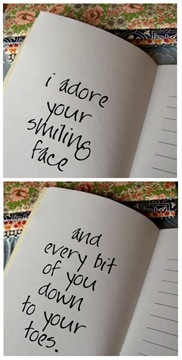 i adore
your
smiling
face
and
every bit
of you
down
to your
toes.